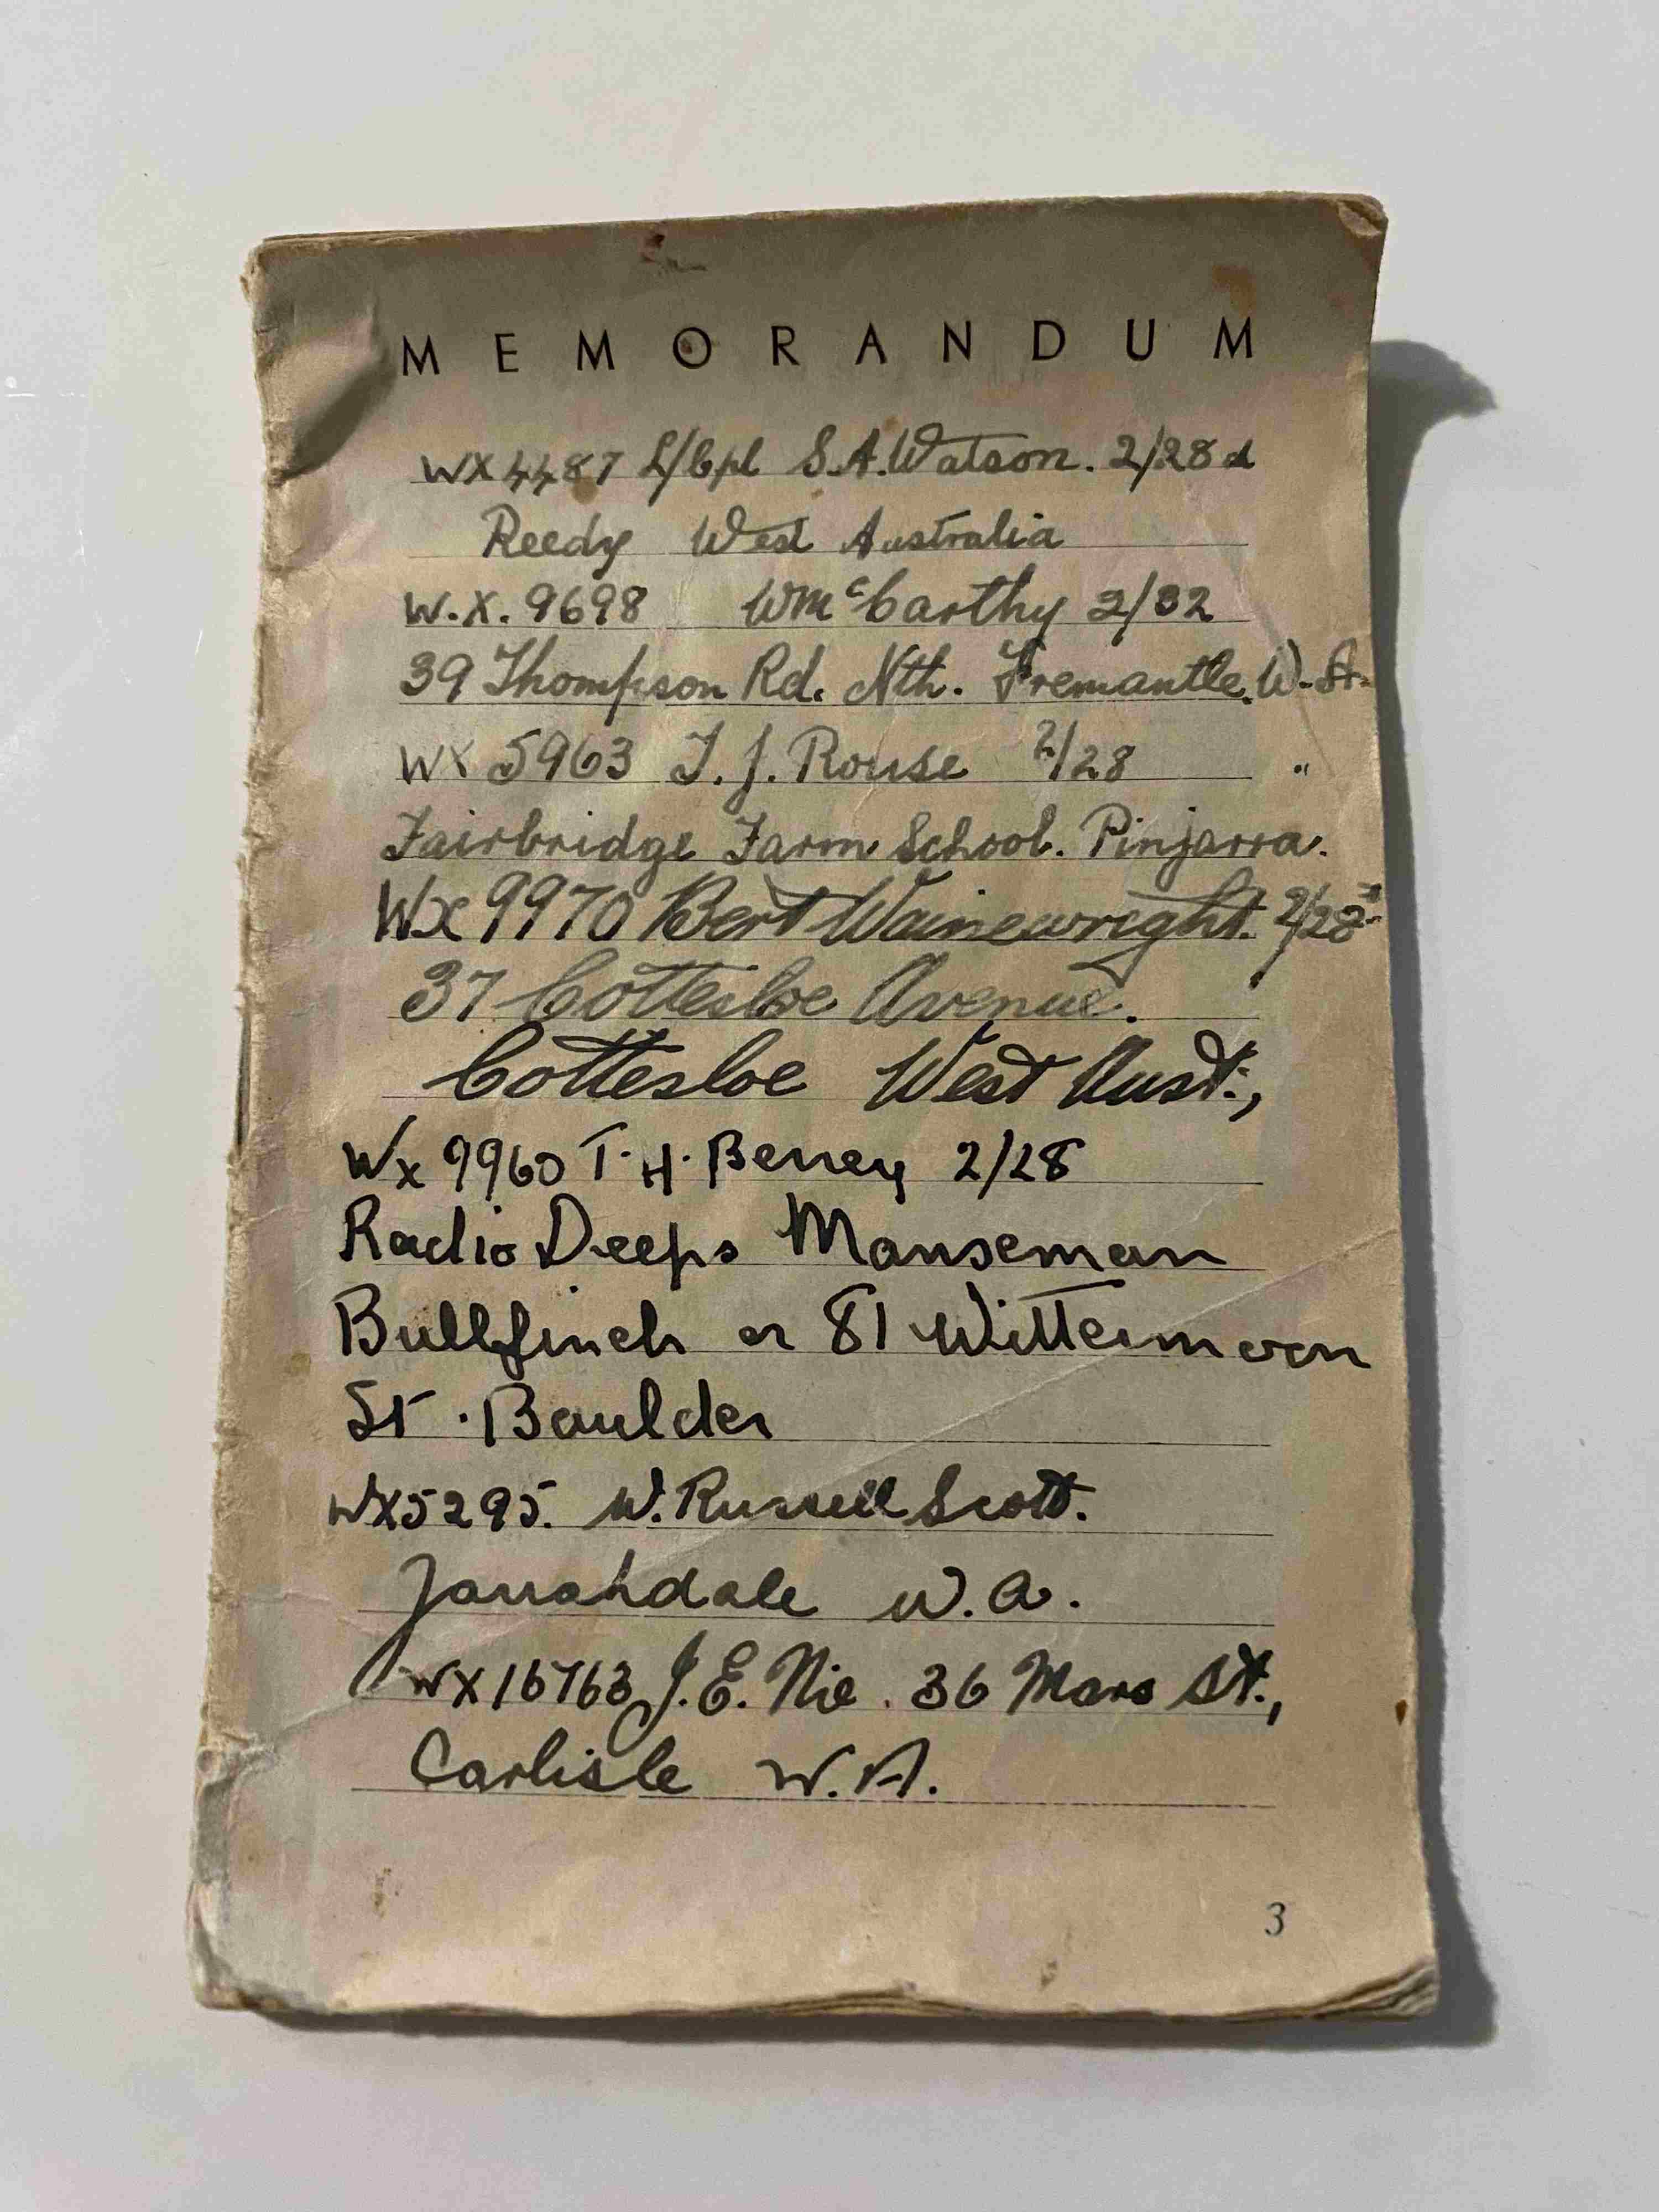 MEMORANDUM
WX4487 L/Cpl S.A. Watson. 2/28
Reedy West Australia
W.X. 9698 W McCarthy 2/32
39 Thompson Rd. Nth. Fremantle. W.A.
WX 5963 T. J. Rouse 2/28 "
Fairbridge Farm School. Pinjarra.
Wx 9970 Bert Wainewright. 2/28
37 Cottesloe Avenue.
Cottesloe West Aust.,
Wx 9960 T. H. Beney 2/28
Radio Deeps
Bullfinch or 81
St. Boulder
WX5295. W. Russell Scott.
Jarrahdale W.A.
WX16763 J.E. Nie. 36 Mars St.,
Carlisle W.A.
3